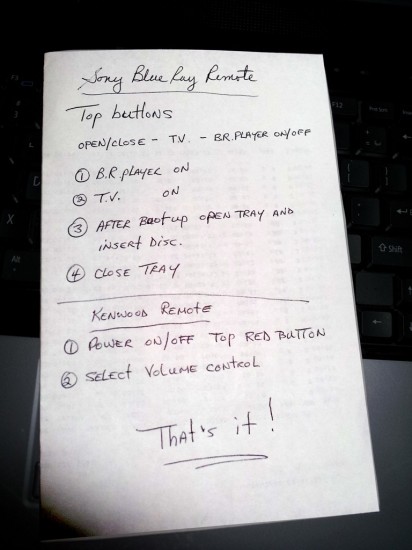 Sony Blue Ray Remote
Top buttons
OPEN/CLOSE - T.V. - B.R.PLAYER ON/OFF
① B.R. PLAYER ON
② T.V. ON
③ AFTER Bootup OPEN TRAY AND
INSERT DISC.
④ CLOSE TRAY
KENWOOD REMOTE
① POWER ON/OFF TOP RED BUTTON
② SELECT VOLUME CONTROL
That's it!
F12
Shift
Alt
X